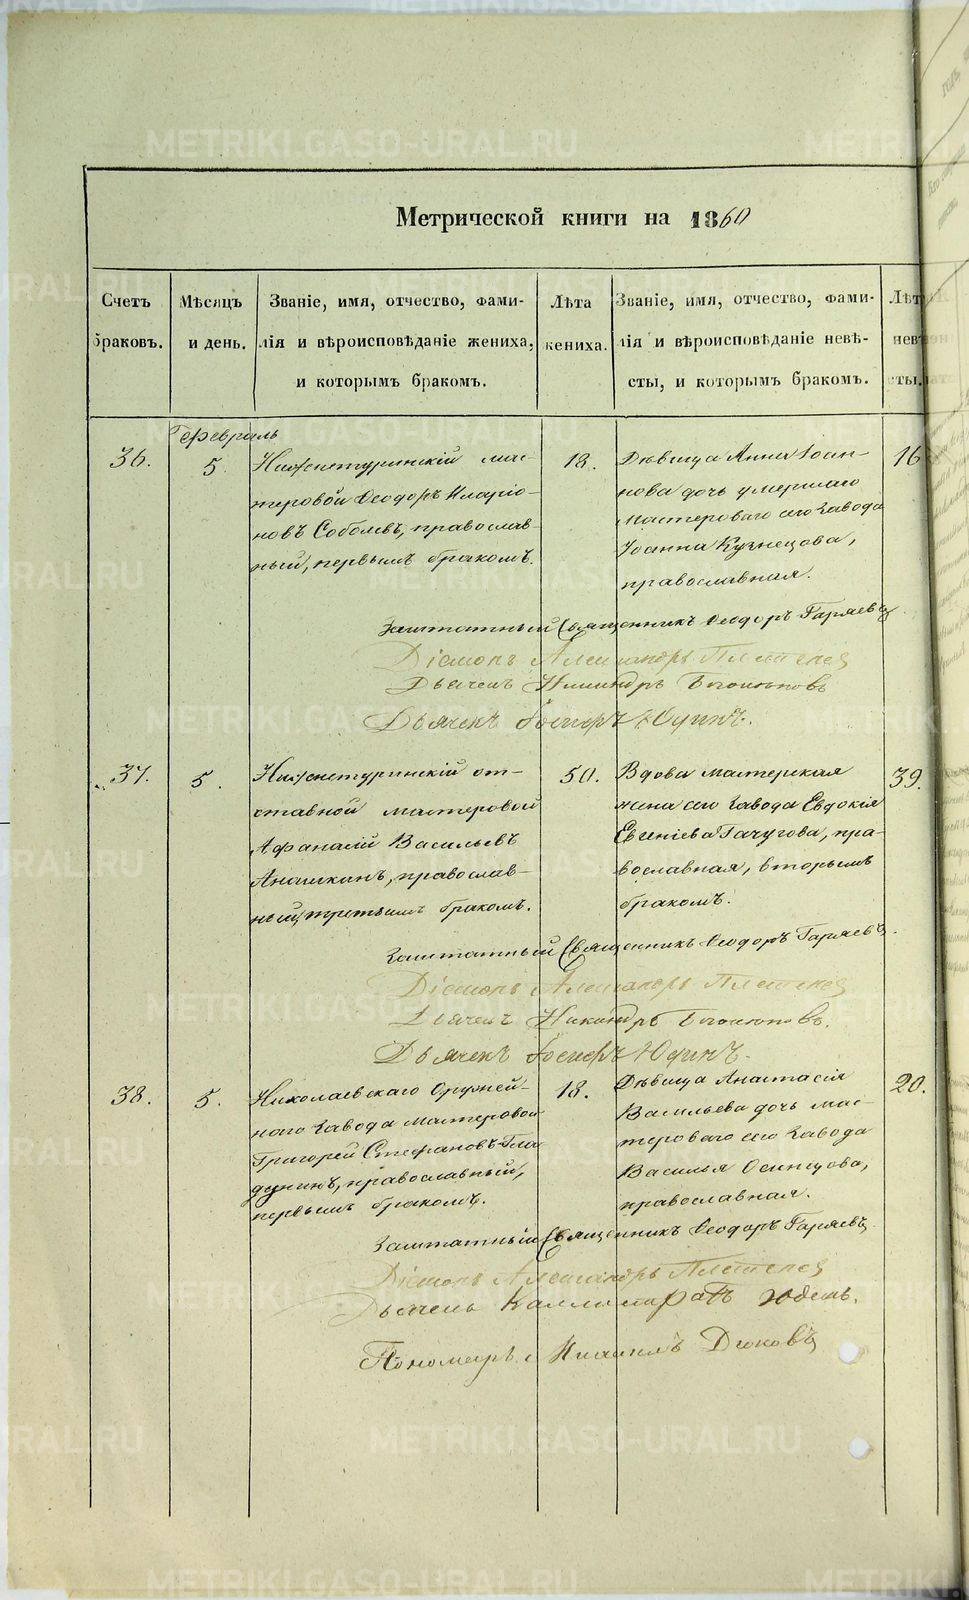 Метрической книги на 1860
Счетъ браковъ.
Мѣсяцъ и день.
Званіе, имя, отчество, фами-
лія и вѣроисповѣданіе жениха,
и которымъ бракомъ.
Лѣта
жениха.
Званіе, имя, отчество, фами-
лія и вѣроисповѣданіе невѣ-
сты, и которымъ бракомъ.
Лѣт
нев
сты.
Февраль
36.
5.
Нижнетуринскій мас-
теровой Ѳеодоръ Иларіо-
новъ Соболевъ, православ-
ный, первымъ бракомъ.
18.
Дѣвица Анна Іоан-
нова дочь умершаго
мастероваго сего завода
Іоанна Кузнецова,
православная.
16
Заштатный Священникъ Ѳеодоръ Гаряевъ.
Діаконъ Александръ
Дьячекъ Никандръ
Дьячекъ Іосифъ Юдинъ.
37.
5.
Нижнетуринскій от-
ставной мастеровой
Афанасій Васильевъ
православ-
ный третьимъ бракомъ.
50.
Вдова мастерская
жена сего завода Евдокія
Евгеніева пра-
вославная, вторымъ
бракомъ.
39.
Заштатный Священникъ Ѳеодоръ Гаряевъ.
Діаконъ Александръ
Дьячекъ Никандръ
Дьячекъ Іосифъ Юдинъ.
38.
5.
Николаевскаго Оружей-
наго завода мастеровой
Григорей Стефановъ
православный,
первымъ бракомъ.
18.
Дѣвица Анастасія
Васильева дочь мас-
тероваго сего завода
Василья Осинцова,
православная.
20.
Заштатный Священникъ Ѳеодоръ Гаряевъ.
Діаконъ Александръ
Дьячекъ Каллистратъ
Пономарь Михаилъ Дюковъ
METRIKI.GASO-URAL.RU